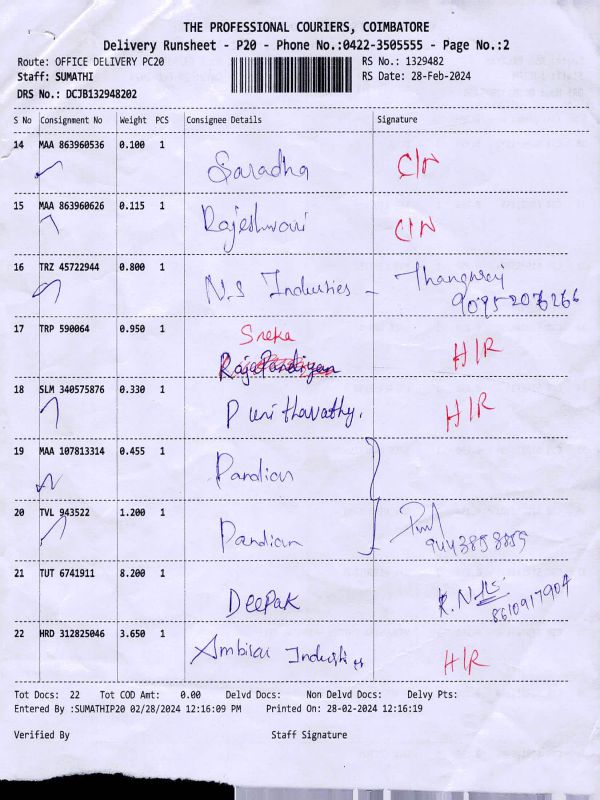 THE PROFESSIONAL COURIERS, COIMBATORE
Delivery Runsheet - P20 - Phone No.:0422-3505555 - Page No.:2
Route: OFFICE DELIVERY PC20 RS No.: 1329482
Staff: SUMATHI RS Date: 28-Feb-2024
DRS No.: DCJB132948202
S No Consignment No Weight PCS Consignee Details Signature
14 MAA 863960536 0.100 1 Saradha C/N
15 MAA 863960626 0.115 1 Rajeshwari C/N
16 TRZ 45722944 0.800 1 N.S Industries - Thangaraj
9095207266
17 TRP 590064 0.950 1 Sneka H/R
RajaPandiyan
18 SLM 340575876 0.330 1 Punithavathy. H/R
19 MAA 107813314 0.455 1 Pandian
20 TVL 943522 1.200 1 Pandian
9443858859
21 TUT 6741911 8.200 1 Deepak
8610917904
22 HRD 312825046 3.650 1 Ambikai Industries H/R
Tot Docs: 22 Tot COD Amt: 0.00 Delvd Docs: Non Delvd Docs: Delvy Pts:
Entered By :SUMATHIP20 02/28/2024 12:16:09 PM Printed On: 28-02-2024 12:16:19
Verified By Staff Signature